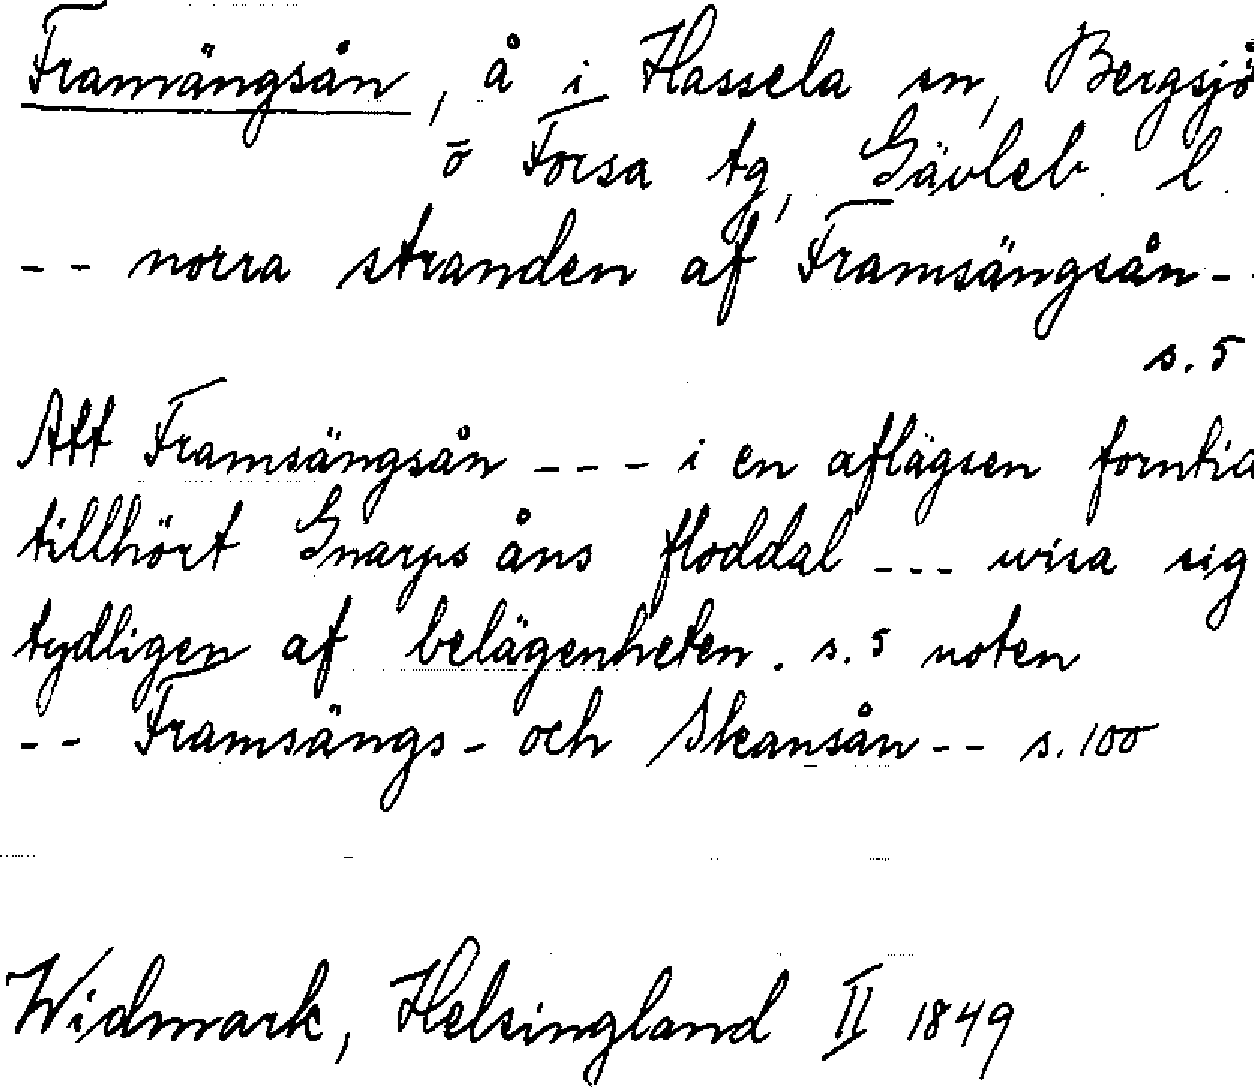 Framängsån, å i Hassela sn, Bergsjö
o Forsa tg, Gävleb. l.
-- norra stranden af Framsängsån--
s. 5
Att Framsängsån --- i en aflägsen forntid
tillhört Gnarps åns floddal --- wisa sig
tydligen af belägenheten. s. 5 noten
-- Framsängs- och Skansån -- s. 100
Widmark, Helsingland II 1849